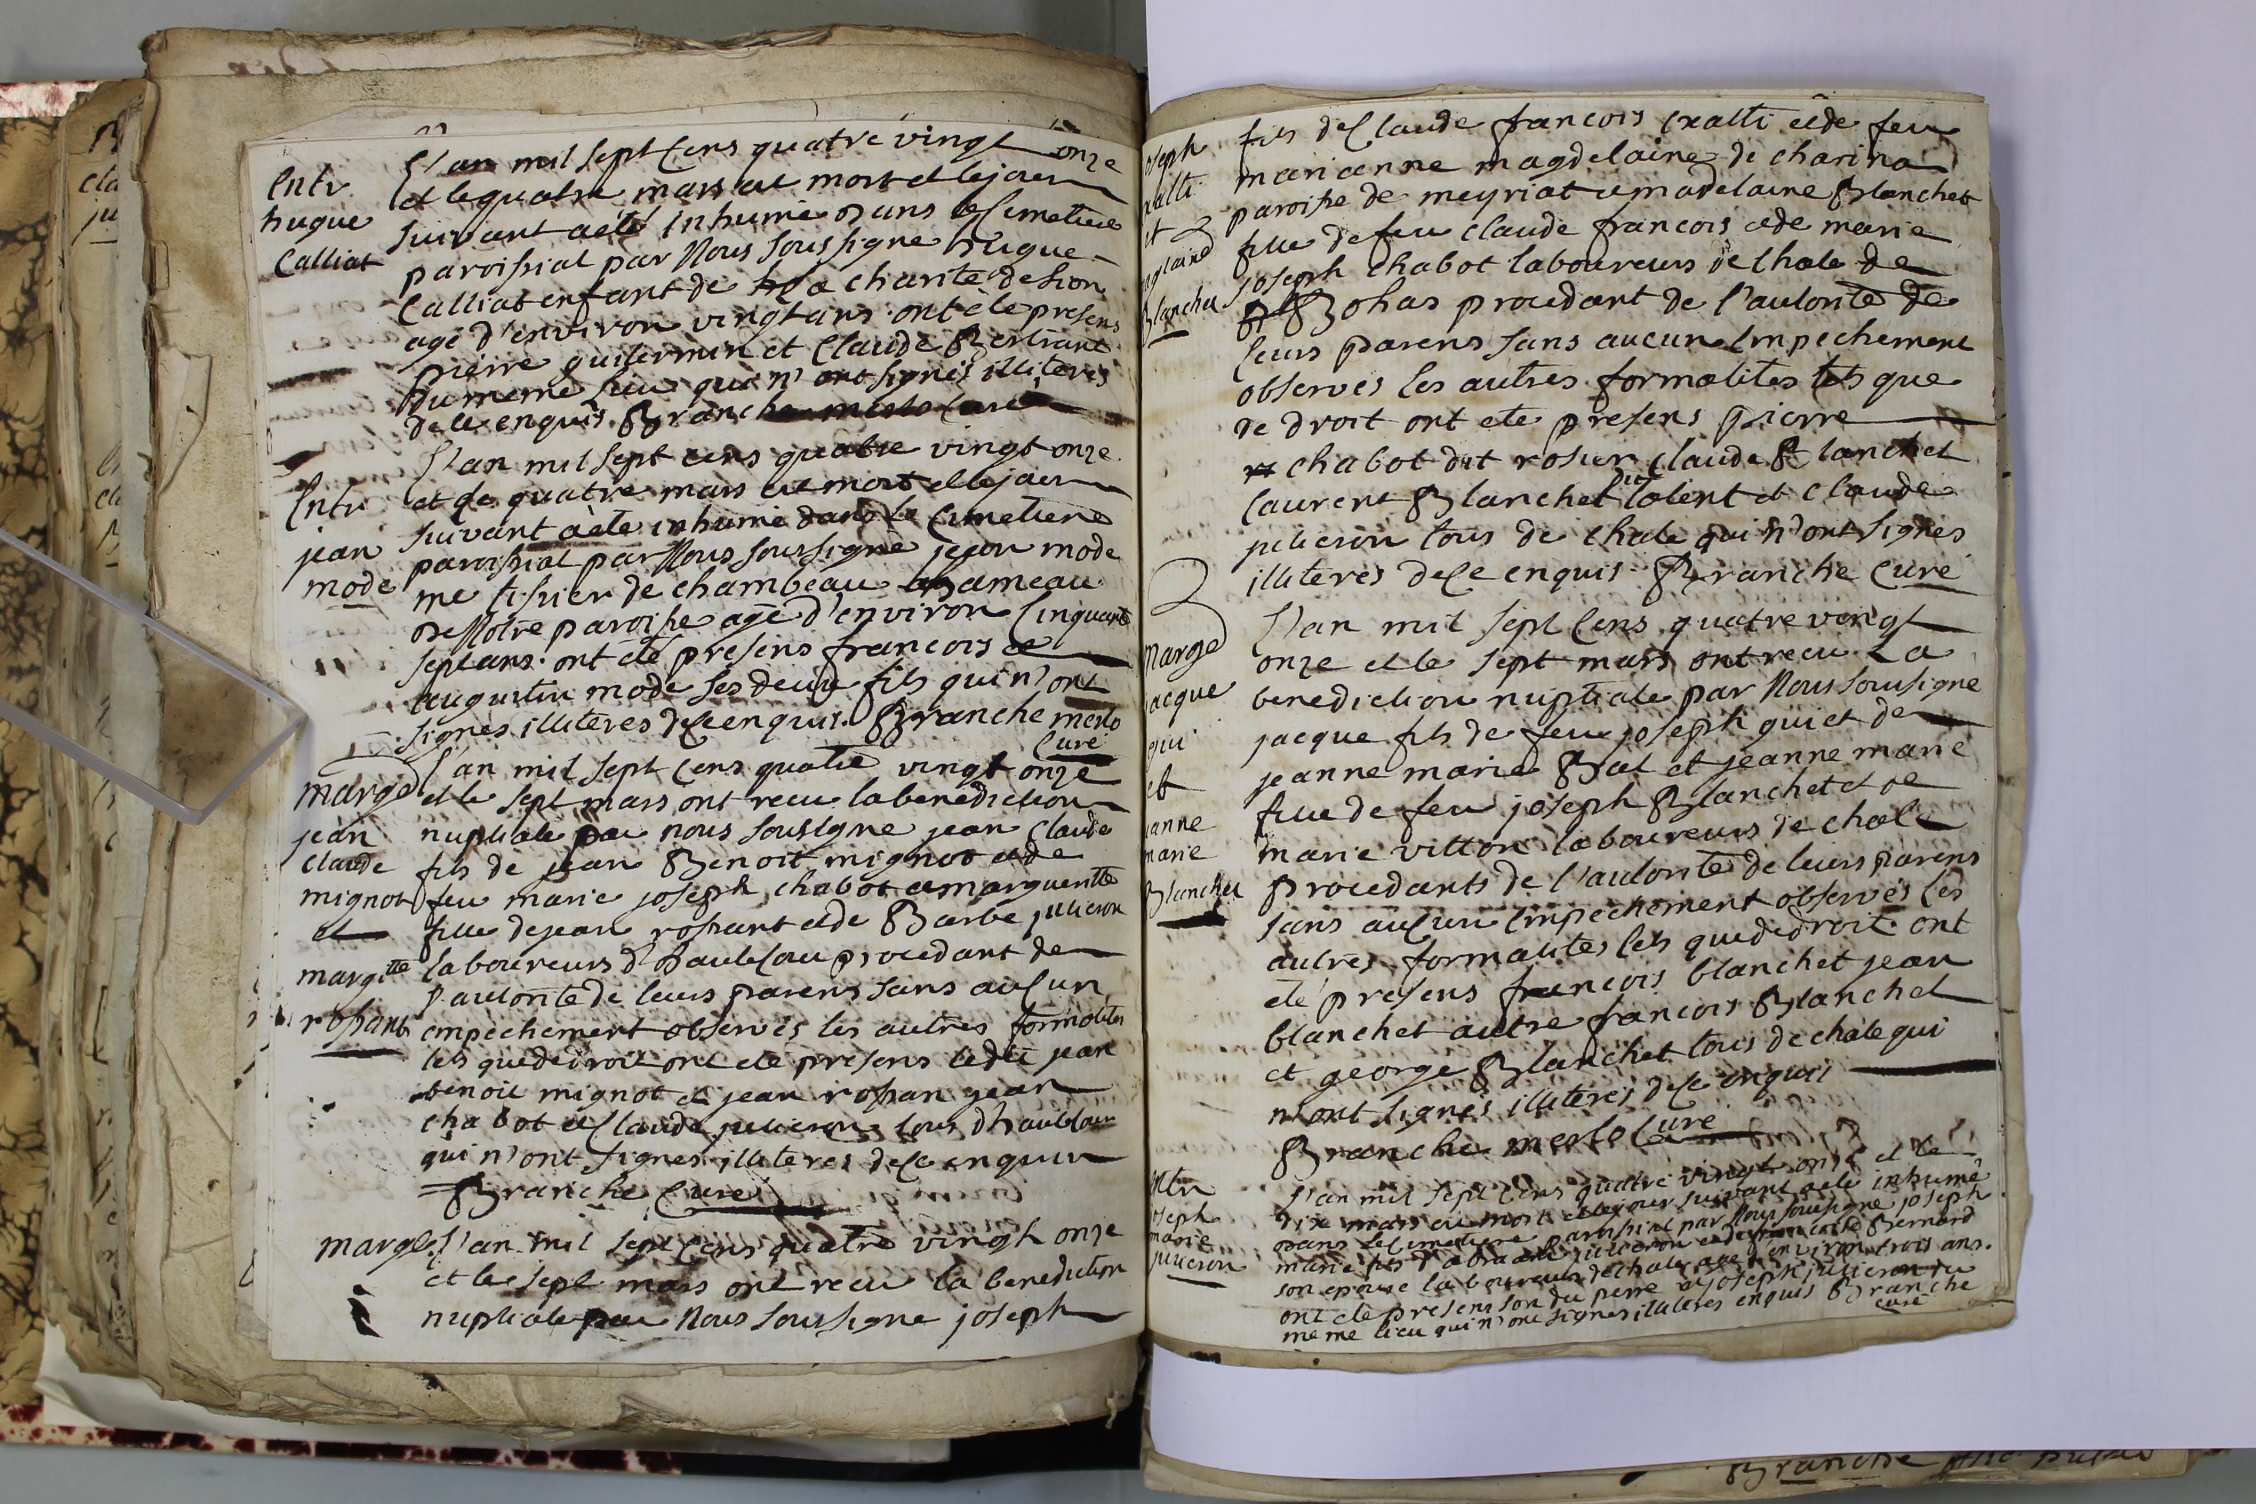 Entr
hugue
Calliat
L'an mil sept cens quatre vingt onze
et le quatre mars est mort et le jour
suivant a été inhumé dans le Cimetiere
paroissial par Nous soussigné hugue
Calliat enfant de la charité de Lion
agé d'environ vingt ans ont été presens
pierre guilermin et Claude Bertrant
du meme Lieu qui n'ont signés illiteres
de ce enquis Branche merlo Curé
Entr
jean
mode
L'an mil sept cens quatre vingt onze
et le quatre mars est mort et le jour
suivant a été inhumé dans le Cimetiere
paroissial par Nous soussigné jean mode
me tissier de chambeau hameau
de Notre paroisse agé d'environ Cinquante
sept ans ont été presens francois et
augustin mode ses deux fils qui n'ont
signés illiteres de ce enquis Branche merlo
Curé
marge
jean
claude
mignot
et
margtte
rossant
L'an mil sept cens quatre vingt onze
et le sept mars ont recu la benediction
nuptiale par nous soussigné jean claude
fils de jean Benoit mignot et de
feu marie joseph chabot et margueritte
fille de jean rossant et de Barbe julieron
laboureurs procedant de
l'autorité de leurs parens sans aucun
empechement observés les autres formalites
tels que de droit ont été presens ledit jean
benoit mignot et jean rossan jean
chabot et Claude julieron tous
qui n'ont signés illiteres de ce enquis
Branche Curé
marge
L'an mil sept cens quatre vingt onze
et le sept mars ont recu la benediction
nuptiale par Nous soussigné joseph
oseph
ralli
et
Blanchet
fils de Claude francois et de feu
marianne magdelaine de charina
paroisse de meyriat et madelaine Blanchet
fille de feu claude francois et de marie
joseph chabot laboureurs de Chale de
Bohas procedant de l'autorité de
leurs parens sans aucun Empechement
observés les autres formalites tels que
de droit ont été presens pierre
chabot dit rosier claude Blanchet
laurent Blanchet dit et claude
julieron tous de chale qui n'ont signés
illiteres de ce enquis Branche Curé
marge
jacque
gui
et
anne
marie
Blanchet
L'an mil sept cens quatre vingt
onze et le sept mars ont recu La
benediction nuptiale par Nous soussigné
jacque fils de feu joseph gui et de
jeanne marie Bal et jeanne marie
fille de feu joseph Blanchet et de
marie vitton laboureurs de chale
procedants de l'autorité de leurs parens
sans aucun empechement observés les
autres formalites tels que de droit ont
été presens francois blanchet jean
blanchet autre francois Blanchet
et george Blanchet tous de chale qui
n'ont signés illiteres de ce enquis
Branche merlo Curé
Entr
oseph
marie
julieron
L'an mil sept cens quatre vingt onze et le
dix mars est mort et le jour suivant a été inhumé
dans le Cimetiere paroissial par Nous soussigné joseph
marie fils julieron et de Bernard
son epouse laboureurs de chale agé d'environ trois ans
ont été presens son dit pere et joseph julieron du
meme lieu qui n'ont signés illiteres enquis Branche
curé
Branche